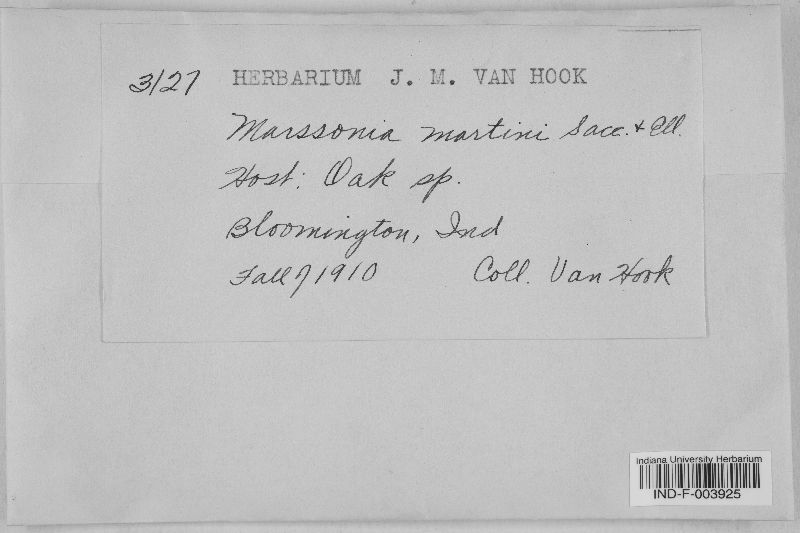 3127 HERBARIUM J. M. VAN HOOK
Marssonia martini Sacc. & Ell.
Host: Oak sp.
Bloomington, Ind
Fall of 1910 Coll. Van Hook
Indiana University Herbarium
IND-F-003925